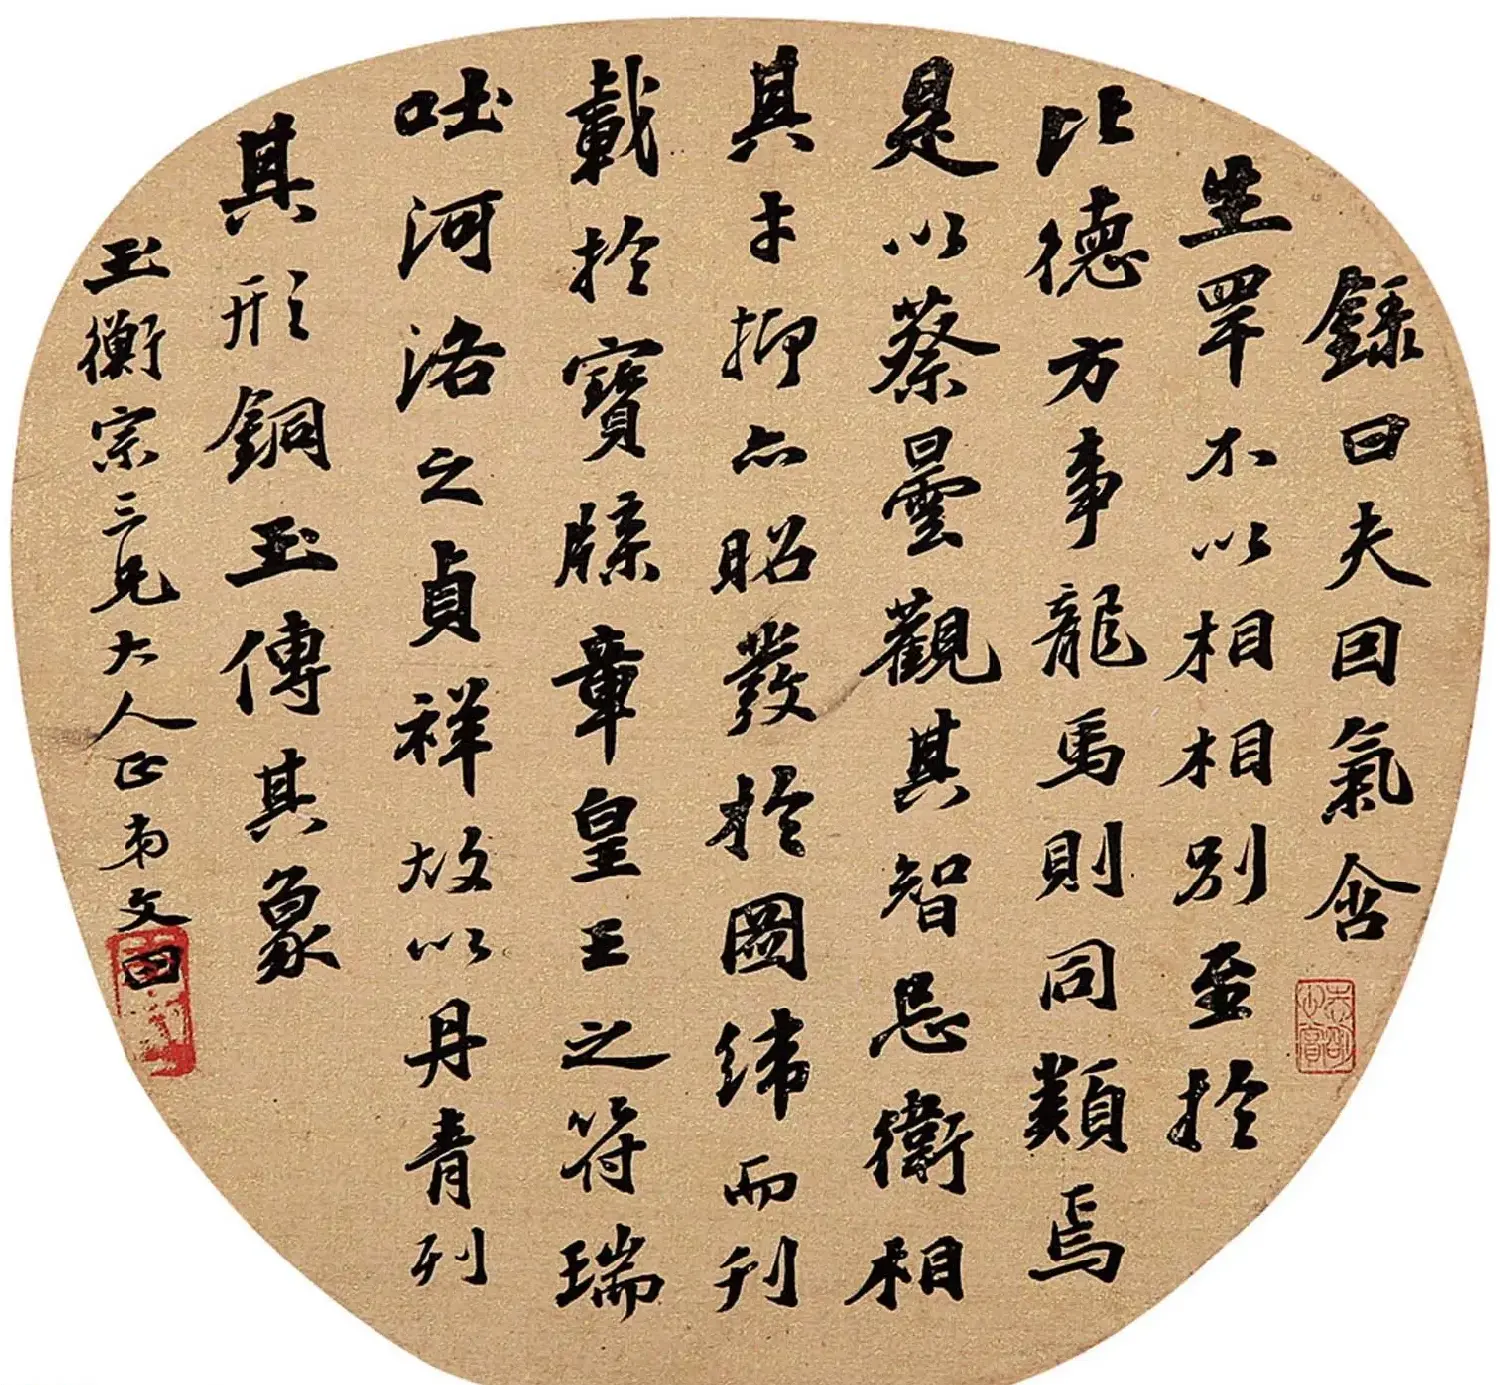 錄曰夫回氣含
生罕不以相相別至於
比德方事龍馬則同類焉
是以蔡曇觀其智忌衛相
其才抑亦昭發於圖緯而刊
載於寶牒章皇王之符瑞
吐河洛之貞祥故以丹青列
其形銅玉傳其象
玉衡宗三兄大人正弟文田